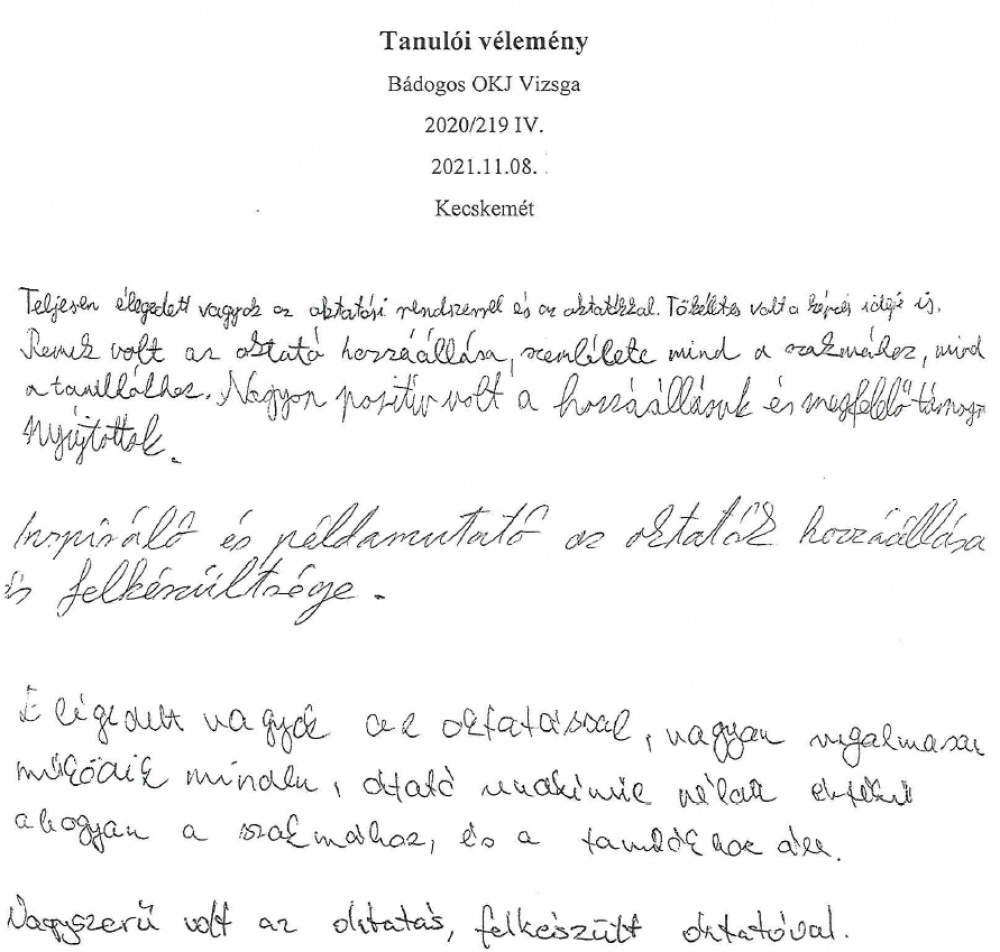 Tanulói vélemény
Bádogos OKJ Vizsga
2020/219 IV.
2021.11.08.
Kecskemét
Teljesen élegedett vagyok az oktatási rendszerrel és az oktatókkal. Tökéletes volt a képzés ideje is.
Remek volt az oktató hozzáállása, szemlélete mind a szakmához, mind
a tanulókhoz. Nagyon pozitív volt a hozzáállásuk és megfelelő támoga
nyújtottak.
Inspiráló és példamutató az oktatók hozzáállása
és felkészültsége.
Elégedett vagyok az oktatással, nagyon rugalmasan
működik minden, oktató
ahogyan a szakmához, és a tanulókhoz áll.
Nagyszerű volt az oktatás, felkészült oktatóval.